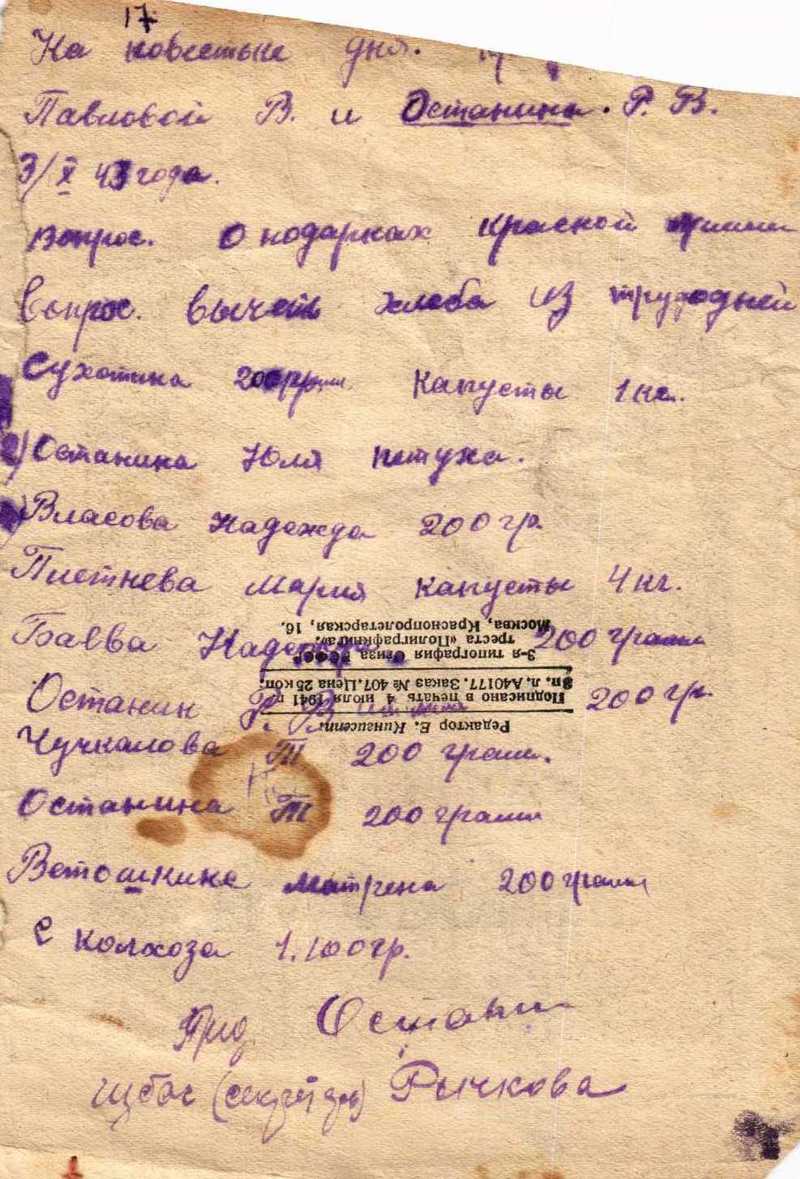 17
На повестке дня.
Павловой В. и Останина. Р. В.
3/X 43 года.
Вопрос. О подарках красной армии
Вопрос. вычет хлеба из трудодней
Сухотина 200 грамм капусты 1 кг.
2) Останина Юля петуха.
3) Власова Надежда 200 гр.
Пистнева Мария капусты 4 кг.
Баева Надежда 200 грамм
Останин Р. В. 200 гр.
Чучкалова Т 200 грам.
Останина Т 200 грамм
Ветошкина Матрена 200 грамм
С колхоза 1.100 гр.
Пред Останин
(секретарь) Рычкова
Редактор Е. Кингисепп.
Подписано в печать 4 июля 1941 г.
п. л. А40177. Заказ № 407. Цена 25 коп.
3-я типография Огиза РСФСР
треста «Полиграфкнига».
Москва, Краснопролетарская, 16.